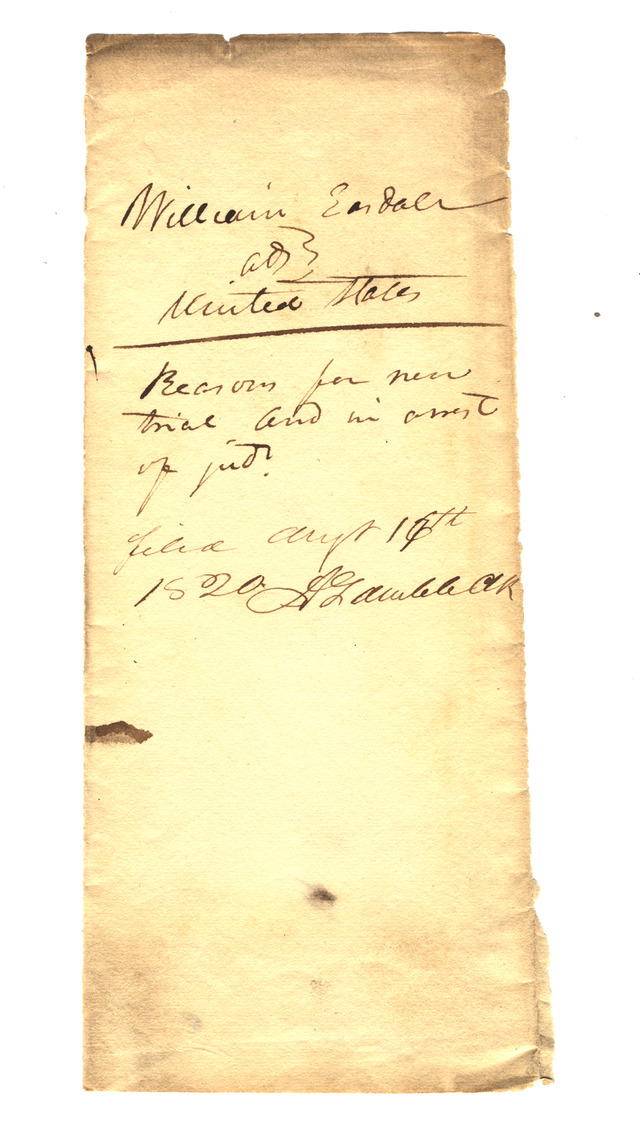 William Easdale
ads }
United States
Reasons for new
trial and in arrest
of judt.
filed Augt 17th
1820 A Lambb Clk